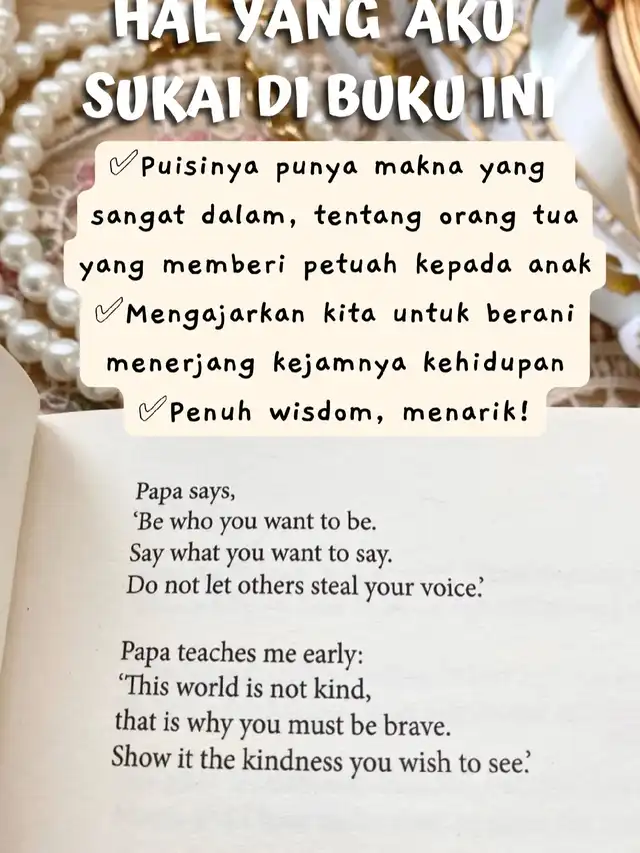 HAL YANG AKU
SUKAI DI BUKU INI
✅Puisinya punya makna yang
sangat dalam, tentang orang tua
yang memberi petuah kepada anak
✅Mengajarkan kita untuk berani
menerjang kejamnya kehidupan
✅Penuh wisdom, menarik!
Papa says,
‘Be who you want to be.
Say what you want to say.
Do not let others steal your voice.’
Papa teaches me early:
‘This world is not kind,
that is why you must be brave.
Show it the kindness you wish to see.’